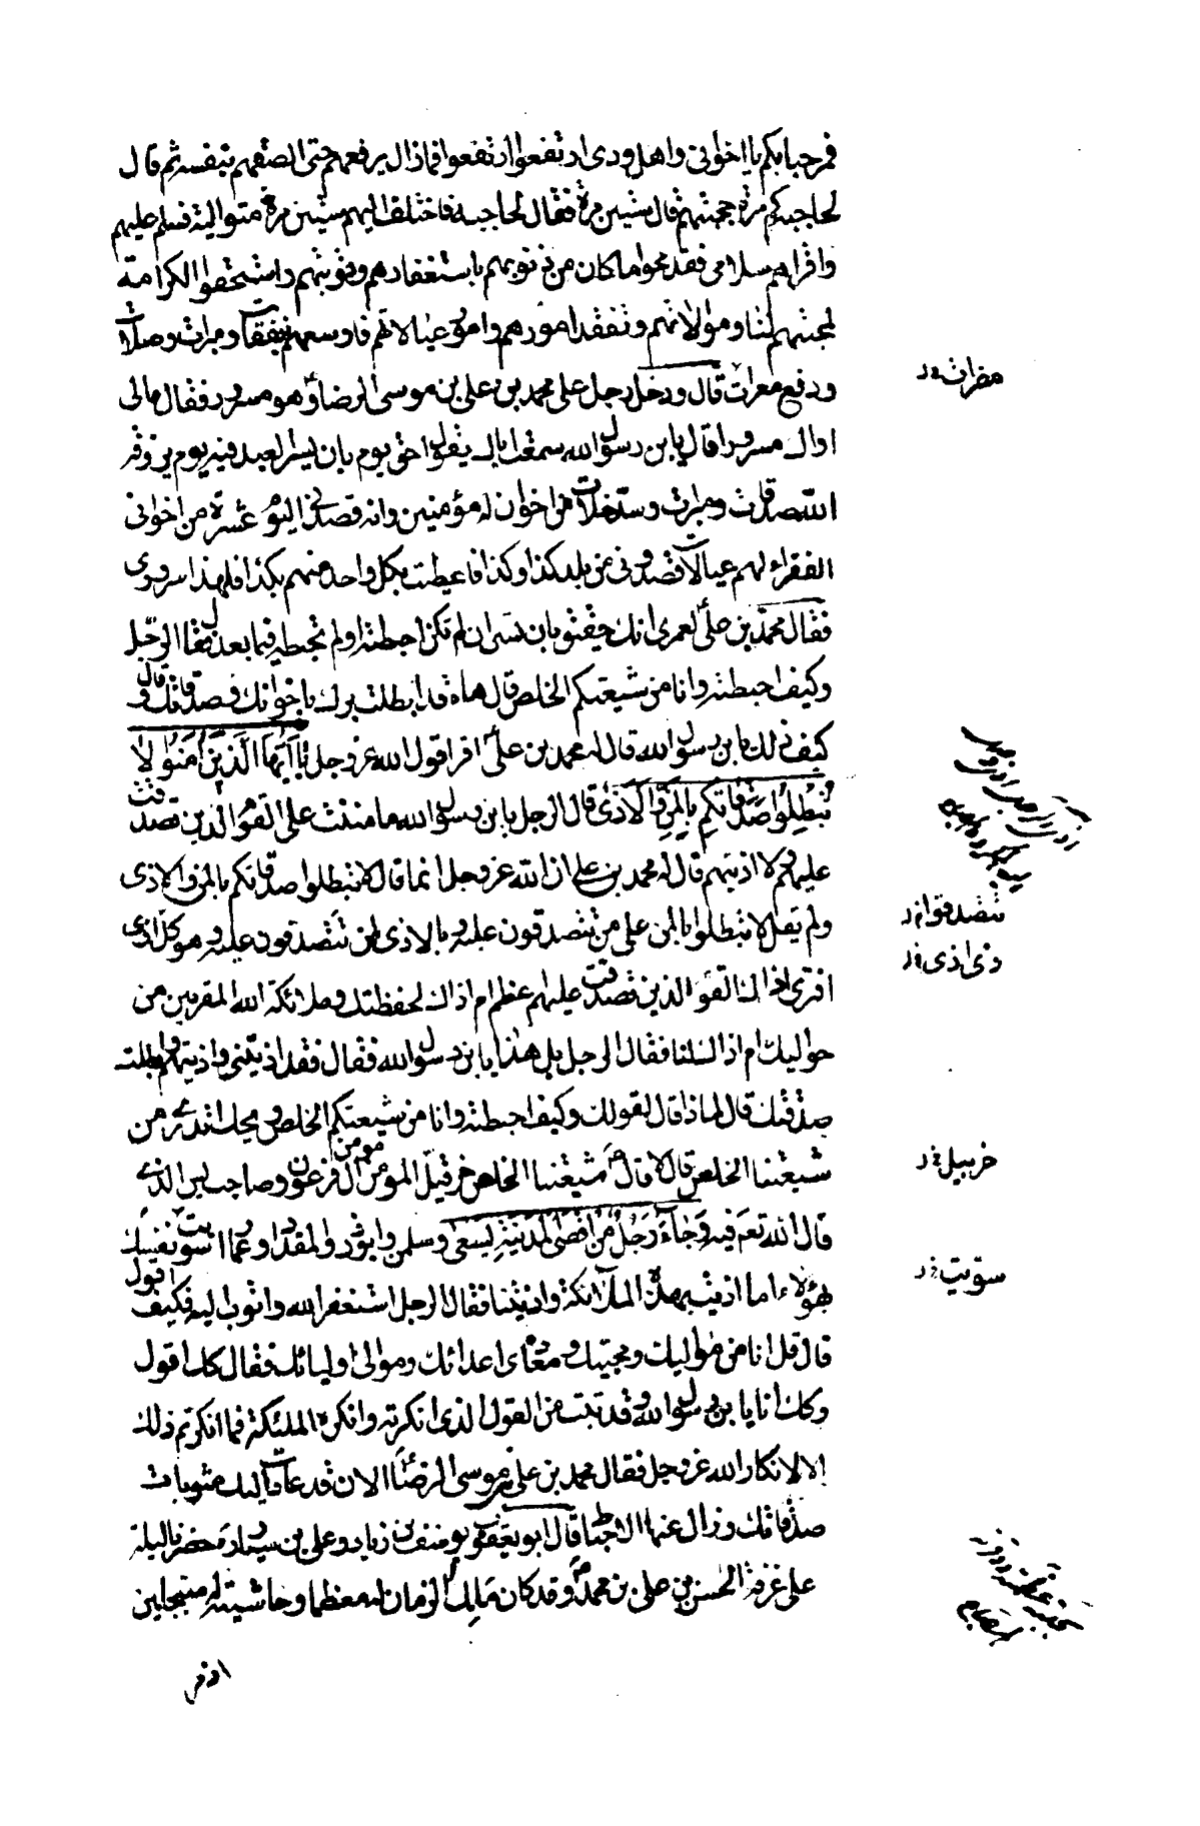 فمرحبا بكم يا اخوانى واهل ودى ارتفعوا ارتفعوا فمازال يرفعهم حتى الصقهم بنفسه ثم قال
لحاجبه كم مرة حجبتهم قال ستين مرة فقال لحاجبه فاختلف اليهم ستين مرة متوالية فسلم عليهم
واقراهم سلامى فقد محوا ما كان من ذنوبهم باستغفارهم وتوبتهم واستحقوا الكرامة
لمحبتهم لنا وموالاتهم وتفقد امورهم وامور عيالاتهم فاوسعهم بنفقات ومبرات وصلات
ودفع معرات قال ودخل رجل على محمد بن على بن موسى الرضا ع وهو مسرور فقال مالى
مضرات در
اراك مسرورا قال يا بن رسول الله سمعت اباك يقول احق يوم بان يسر العبد فيه يوم يرزقه
الله صدقات ومبرات وستخلات من اخوان له مؤمنين وانه قصدنى اليوم عشرة من اخوانى
الفقراء لهم عيالات قصدونى من بلد كذا وكذا فاعطيت لكل واحد منهم بكذا فلهذا سرورى
فقال محمد بن على ع لعمرى انك حقيق بان تسر ان لم تكن احبطته اولم تحبطه فيما بعد فقال الرجل
وكيف احبطته وانا من شيعتكم الخلص قال هاه قد ابطلت برك باخوانك وصدقاتك قال و
كيف ذلك يا بن رسول الله قال له محمد بن على ع اقرا قول الله عز وجل يا ايها الذين امنوا لا
تبطلوا صدقاتكم بالمن والاذى قال الرجل يا بن رسول الله ما مننت على القوم الذين تصدقت
عليهم ولا اذيتهم قال له محمد بن على ان الله عز وجل انما قال لا تبطلوا صدقاتكم بالمن والاذى
ولم يقل لا تبطلوا بالمن على من تتصدقون عليه وبالاذى لمن تتصدقون عليه وهو كل اذى
تتصدقوا در
ذى اذى در
افترى اذاك القوم الذين تصدقت عليهم عظم ام اذاك لحفظتك وملائكة الله المقربين من
حواليك ام اذاك لنا فقال الرجل بل هذا يا بن رسول الله فقال فقد اذيتنى واذيتهم وابطلت
صدقتك قال لماذا قال لقولك وكيف احبطته وانا من شيعتكم الخلص ويحك اتدرى من
شيعتنا الخلص قال لا قال ع شيعتنا الخلص خرقيل المومن مومن آل فرعون وصاحب يس الذى
خربيل در
قال الله تعم فيه وجاء رجل من اقصى المدينة يسعى وسلمن وابوذر والمقداد وعمار اسويت نفسك
بهؤلاء اما اذيت بهذا الملائكة واذيتنا فقال الرجل استغفر الله واتوب اليه فكيف اقول
سويت در
قال قل انا من مواليك ومحبيك ومعادى اعدائك وموالى اوليائك فقال كك اقول
وكك انا يا بن رسول الله وقد تبت من القول الذى انكرته وانكرته الملئكة فما انكرتم ذلك
الا لانكار الله عز وجل فقال محمد بن على بن موسى الرضا ع الان قد عادت اليك مثوبات
صدقاتك وزال عنها الاحباط قال ابو يعقوب يوسف بن زياد وعلى بن سيار ره حضرنا ليلة
على غرفة الحسن بن على بن محمد ع وقد كان ملك الزمان له معظما وحاشيته له متبجلين